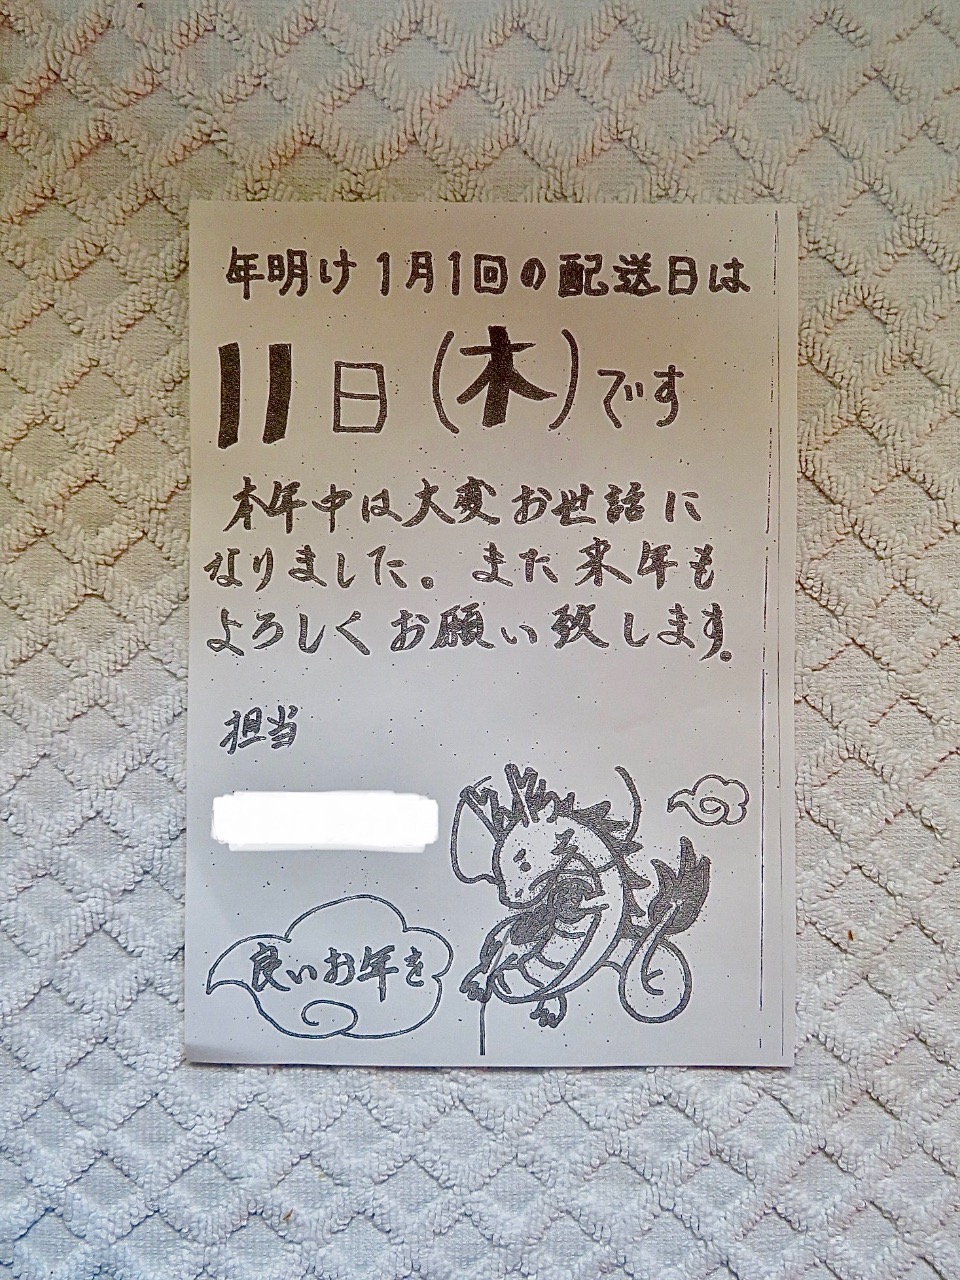 年明け1月1回の配送日は
11日(木)です
本年中は大変お世話に
なりました。また来年も
よろしくお願い致します。
担当
良いお年を